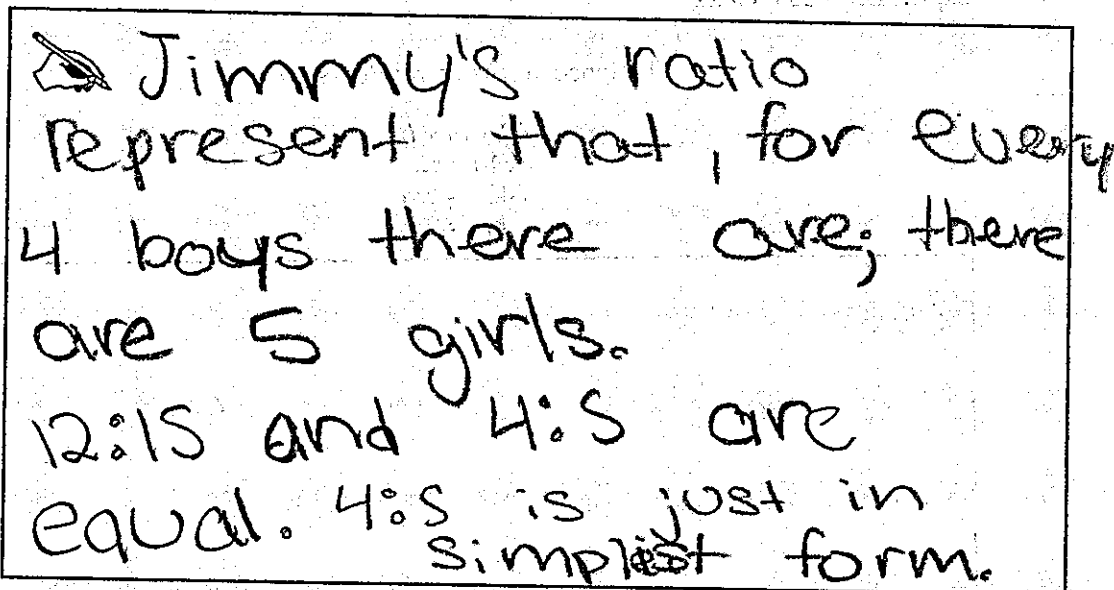 Jimmy's ratio
represent that, for every
4 boys there are; there
are 5 girls.
12:15 and 4:5 are
equal. 4:5 is just in
simplist form.